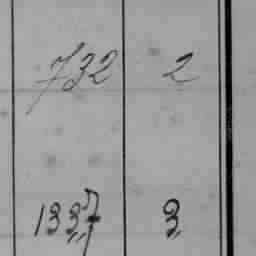 732 2
1337 3